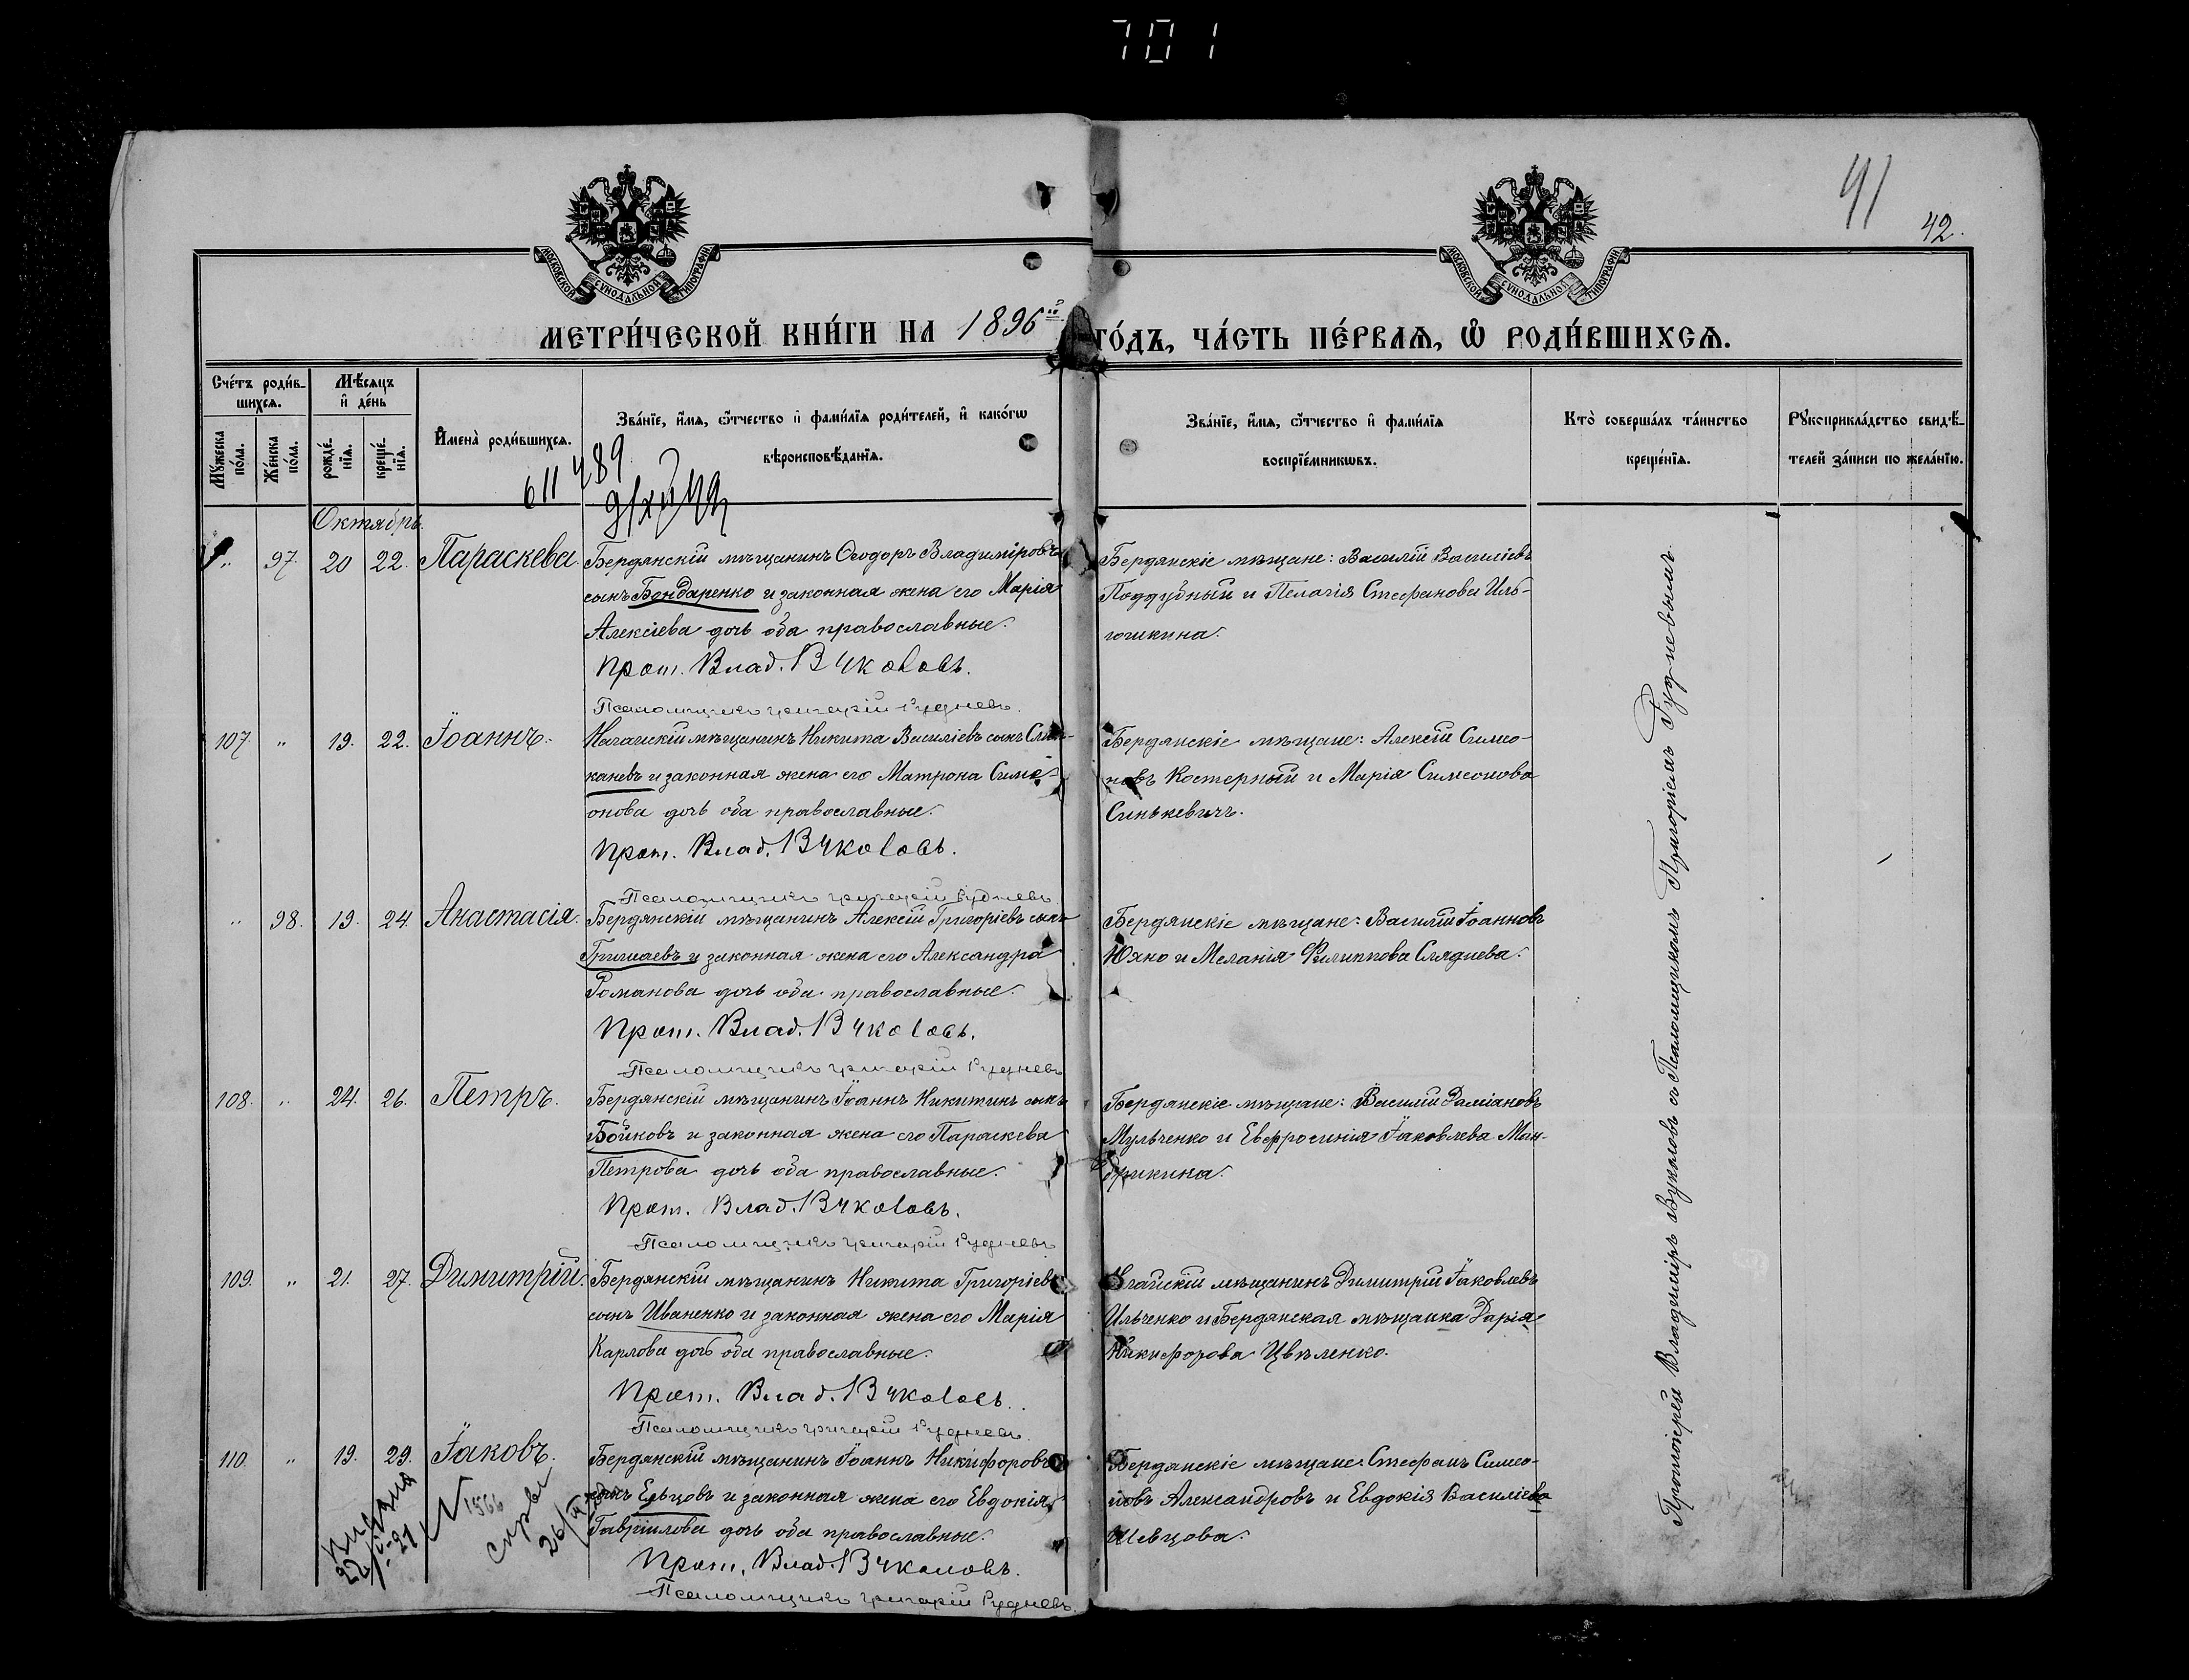 701
41
42.
МОСКОВСКОЙ СѴНОДАЛЬНОЙ ТИПОГРАФІИ
МОСКОВСКОЙ СѴНОДАЛЬНОЙ ТИПОГРАФІИ
МЕТРИ́ЧЕСКОЙ КНИ́ГИ НА 1896й ГО́ДЪ, ЧА́СТЬ ПЕ́РВАѦ, Ѡ҆ РОДИ́ВШИХСѦ.
Сче́тъ роди́в-
шихсѧ.
Мꙋ́жеска по́ла.
Же́нска по́ла.
Мѣ́сѧцъ
и҆ де́нь
рожде́-
нїѧ.
креще́-
нїѧ.
И҆мена̀ роди́вшихсѧ.
Зва́нїе, и҆́мѧ, ѻ҆́тчество и҆ фами́лїѧ роди́телей, и҆ како́гѡ
вѣроисповѣ́данїѧ.
Зва́нїе, и҆́мѧ, ѻ҆́тчество и҆ фами́лїѧ
воспрїе́мникѡвъ.
Кто̀ соверша́лъ та́инство
креще́нїѧ.
Рꙋкоприкла́дство свидѣ́-
телей за́писи по жела́нїю.
611 489
Октябрь.
„ 97. 20 22. Параскева.
Бердянскій мѣщанинъ Ѳеодоръ Владиміровъ
сынъ Бондаренко и законная жена его Марія
Алексіева дочь оба православные.
Прот. Влад. Вуколовъ.
Псаломщикъ Григорій Рудневъ.
Бердянскіе мѣщане: Василій Василіевъ
Поддубный и Пелагія Стефанова Иль-
юшкина.
107. „ 19. 22. Іоаннъ.
Ногайскій мѣщанинъ Никита Василіевъ сынъ
кановъ и законная жена его Матрона Симе-
онова дочь оба православные.
Прот. Влад. Вуколовъ.
Псаломщикъ Григорій Рудневъ
Бердянскіе мѣщане: Алексій Симео-
новъ Костерный и Марія Симеонова
Синькевичъ.
„ 98. 19. 24. Анастасія.
Бердянскій мѣщанинъ Алексій Григоріевъ сынъ
Гришаевъ и законная жена его Александра
Романова дочь оба православные.
Прот. Влад. Вуколовъ.
Псаломщикъ Григорій Рудневъ
Бердянскіе мѣщане: Василій Іоанновъ
Юхно и Меланія Филиппова Слядиева.
108. „ 24. 26. Петръ.
Бердянскій мѣщанинъ Іоаннъ Никитинъ сынъ
Бойковъ и законная жена его Параскева
Петрова дочь оба православные.
Прот. Влад. Вуколовъ.
Псаломщикъ Григорій Рудневъ
Бердянскіе мѣщане: Василій Даміановъ
Мульченко и Евфросинія Іаковлева Ман-
дрикина.
109. „ 21. 27. Димитрій.
Бердянскій мѣщанинъ Никита Григоріевъ
сынъ Иваненко и законная жена его Марія
Карлова дочь оба православные.
Прот. Влад. Вуколовъ.
Псаломщикъ Григорій Рудневъ.
Ногайскій мѣщанинъ Димитрій Іаковлевъ
Ильченко и Бердянская мѣщанка Дарія
Никифорова Цвѣленко.
110. „ 19. 29. Іаковъ.
Бердянскій мѣщанинъ Іоаннъ Никифоровъ
сынъ Ельцовъ и законная жена его Евдокія
Гавріилова дочь оба православные.
Прот. Влад. Вуколовъ.
Псаломщикъ Григорій Рудневъ.
Бердянскіе мѣщане: Стефанъ Симео-
новъ Александровъ и Евдокія Василіева
Шевцова.
Протоіерей Владиміръ Вуколовъ съ Псаломщикомъ Григоріемъ Рудневымъ.